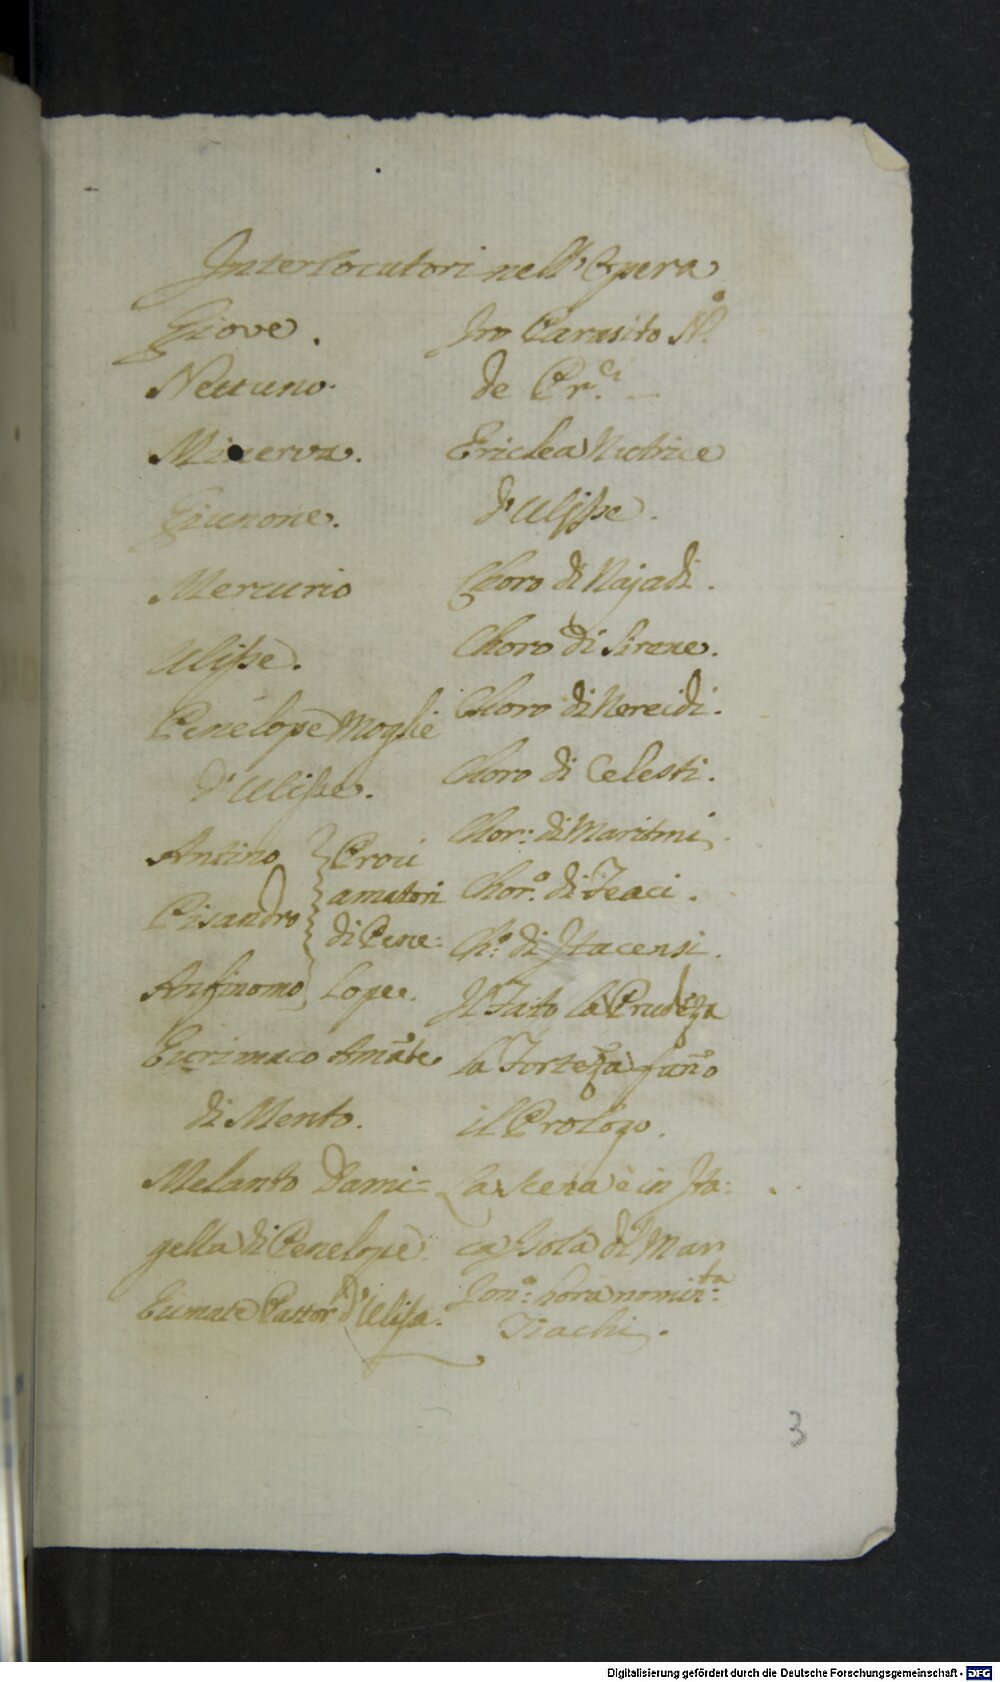 Interlocutori nell'Opera
Giove.
Nettuno.
Minerva.
Giunone.
Mercurio
Ulisse.
Penélope Moglie
d'Ulisse.
Antino
Pisandro
Anfinomo
Proci
amatori
di Pene=
lope.
Eurimaco Amãte
di Mento.
Melanto Dami=
gella di Penelope
Eumate Pastor d'Ulisse.
Iro Parasito N.o
de Pr.ci
Ericlea Nutrice
d'Ulisse.
Choro di Najadi.
Choro di Sirene.
Choro di Nereidi.
Choro di Celesti.
Chor: di Maritmi.
Chor.o di Feaci.
Ch.o di Itacensi.
Il Fato la Prudẽza
la Fortezza fañ o
il Prologo.
La Scena è in Ita=
ca Isola di Mar
Jon.o: hora nomin:ta
Tiachi.
3
Digitalisierung gefördert durch die Deutsche Forschungsgemeinschaft - DFG